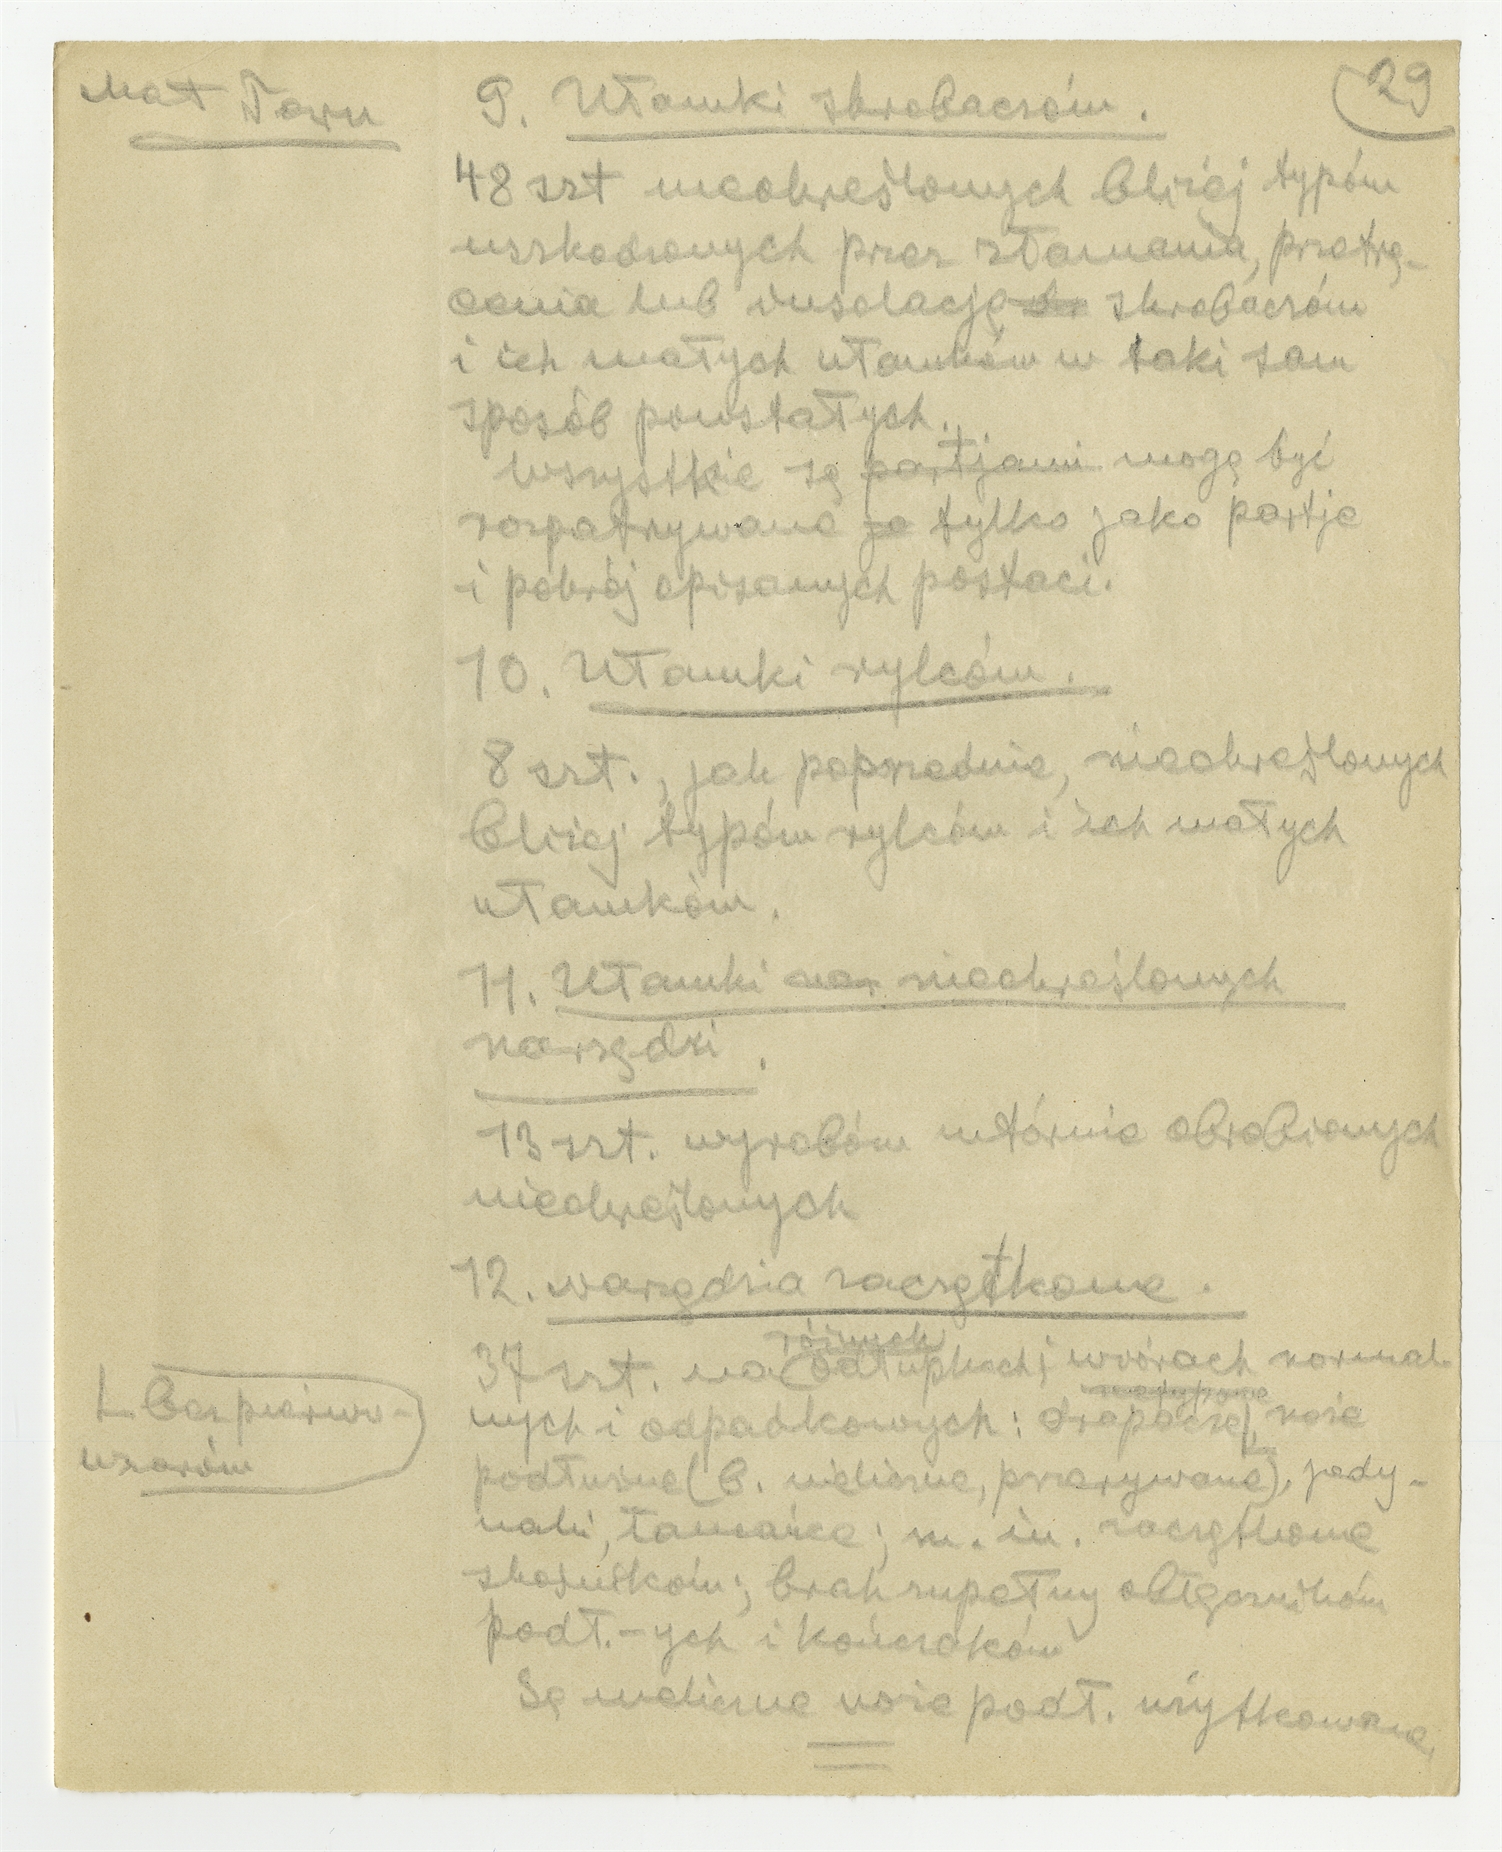 Mat Towu
29
9. Ułamki skrobaczów.
48 szt nieokreślonych bliżej typów
uszkodzonych przez złamania, przetrą-
cenia lub insolację skrobaczów
i ich małych ułamków w taki sam
sposób powstałych.
Wszystkie są partjami mogą być
rozpatrywane ja tylko jako partje
i pokrój opisanych postaci.
10. Ułamki rylców.
8 szt., jak poprzednie, nieokreślonych
bliżej typów rylców i ich małych
ułamków.
11. Ułamki nar nieokreślonych
narzędzi.
13 szt. wyrobów wtórnie obrobionych
nieokreślonych
12. narzędzia zaczątkowe.
różnych
37 szt. na odłupkach i wiórach normal-
nych i odpadkowych: drapacze, noże
podłużne (b. nieliczne, przerywane), jedy-
naki, łamańce; m. in. zaczątkowe
skośników; brak zupełny obłęczników
podł.-ych i kończaków
Są nieliczne noże podł. użytkowane.
Bez pierwo-
wzorów